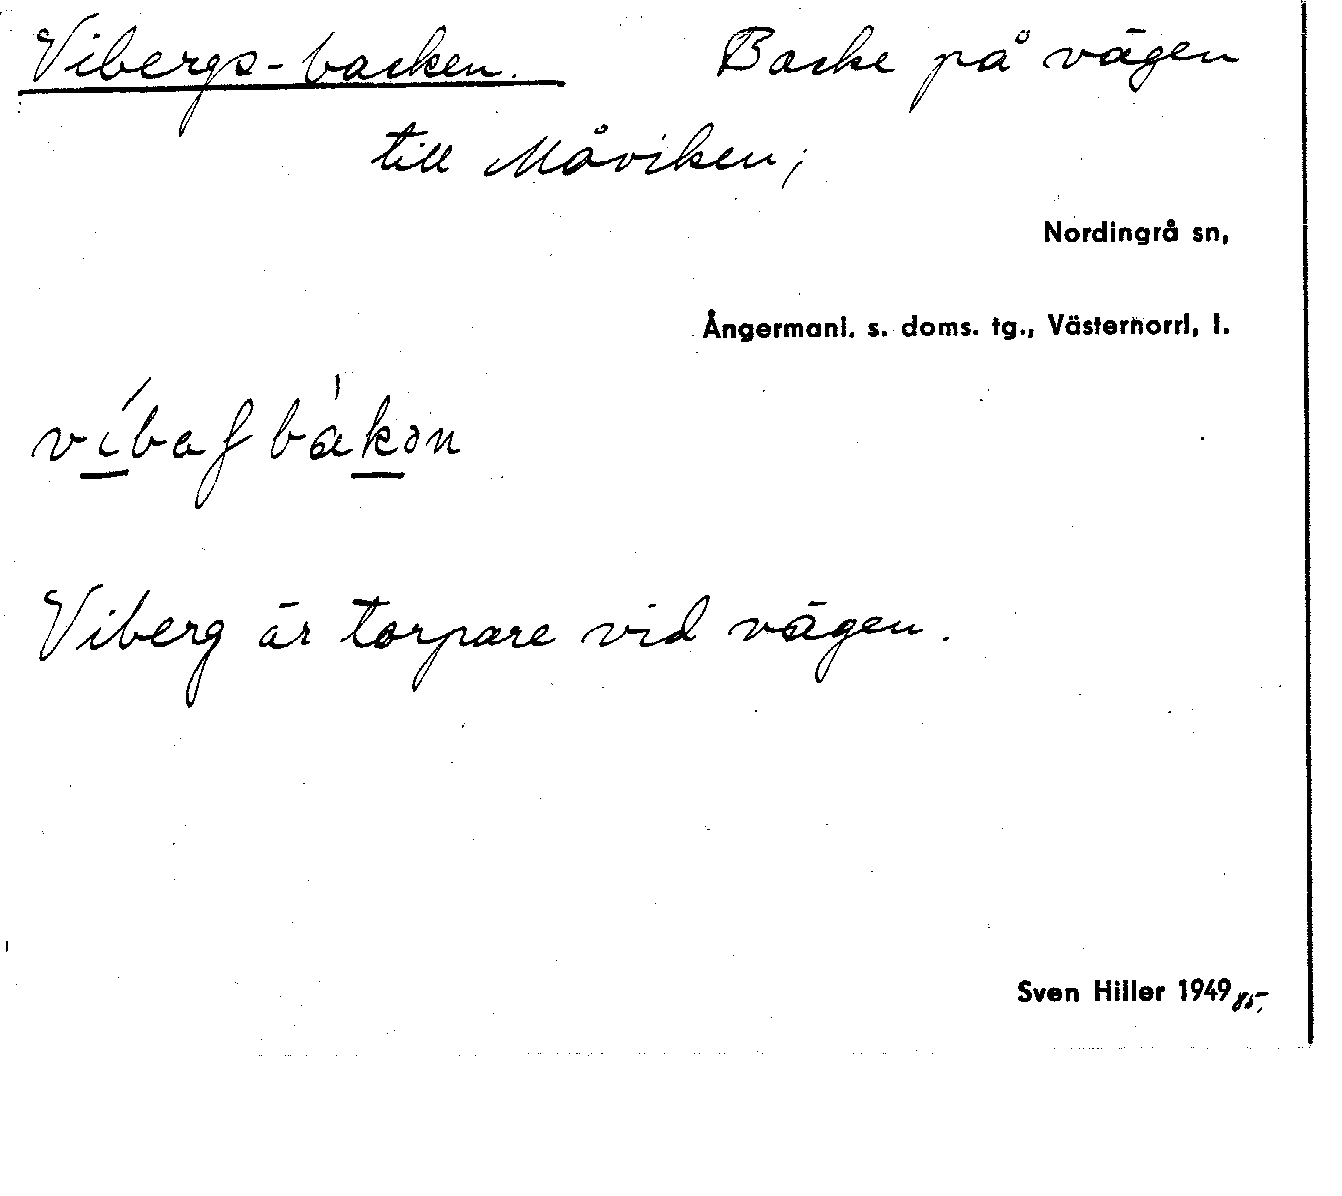 Vibergs-backen. Backe på vägen
till Måviken;
Nordingrå sn,
Ångermanl. s. doms. tg., Västernorrl. l.
víbaʃbákən
Viberg är torpare vid vägen.
Sven Hiller 1949 85.